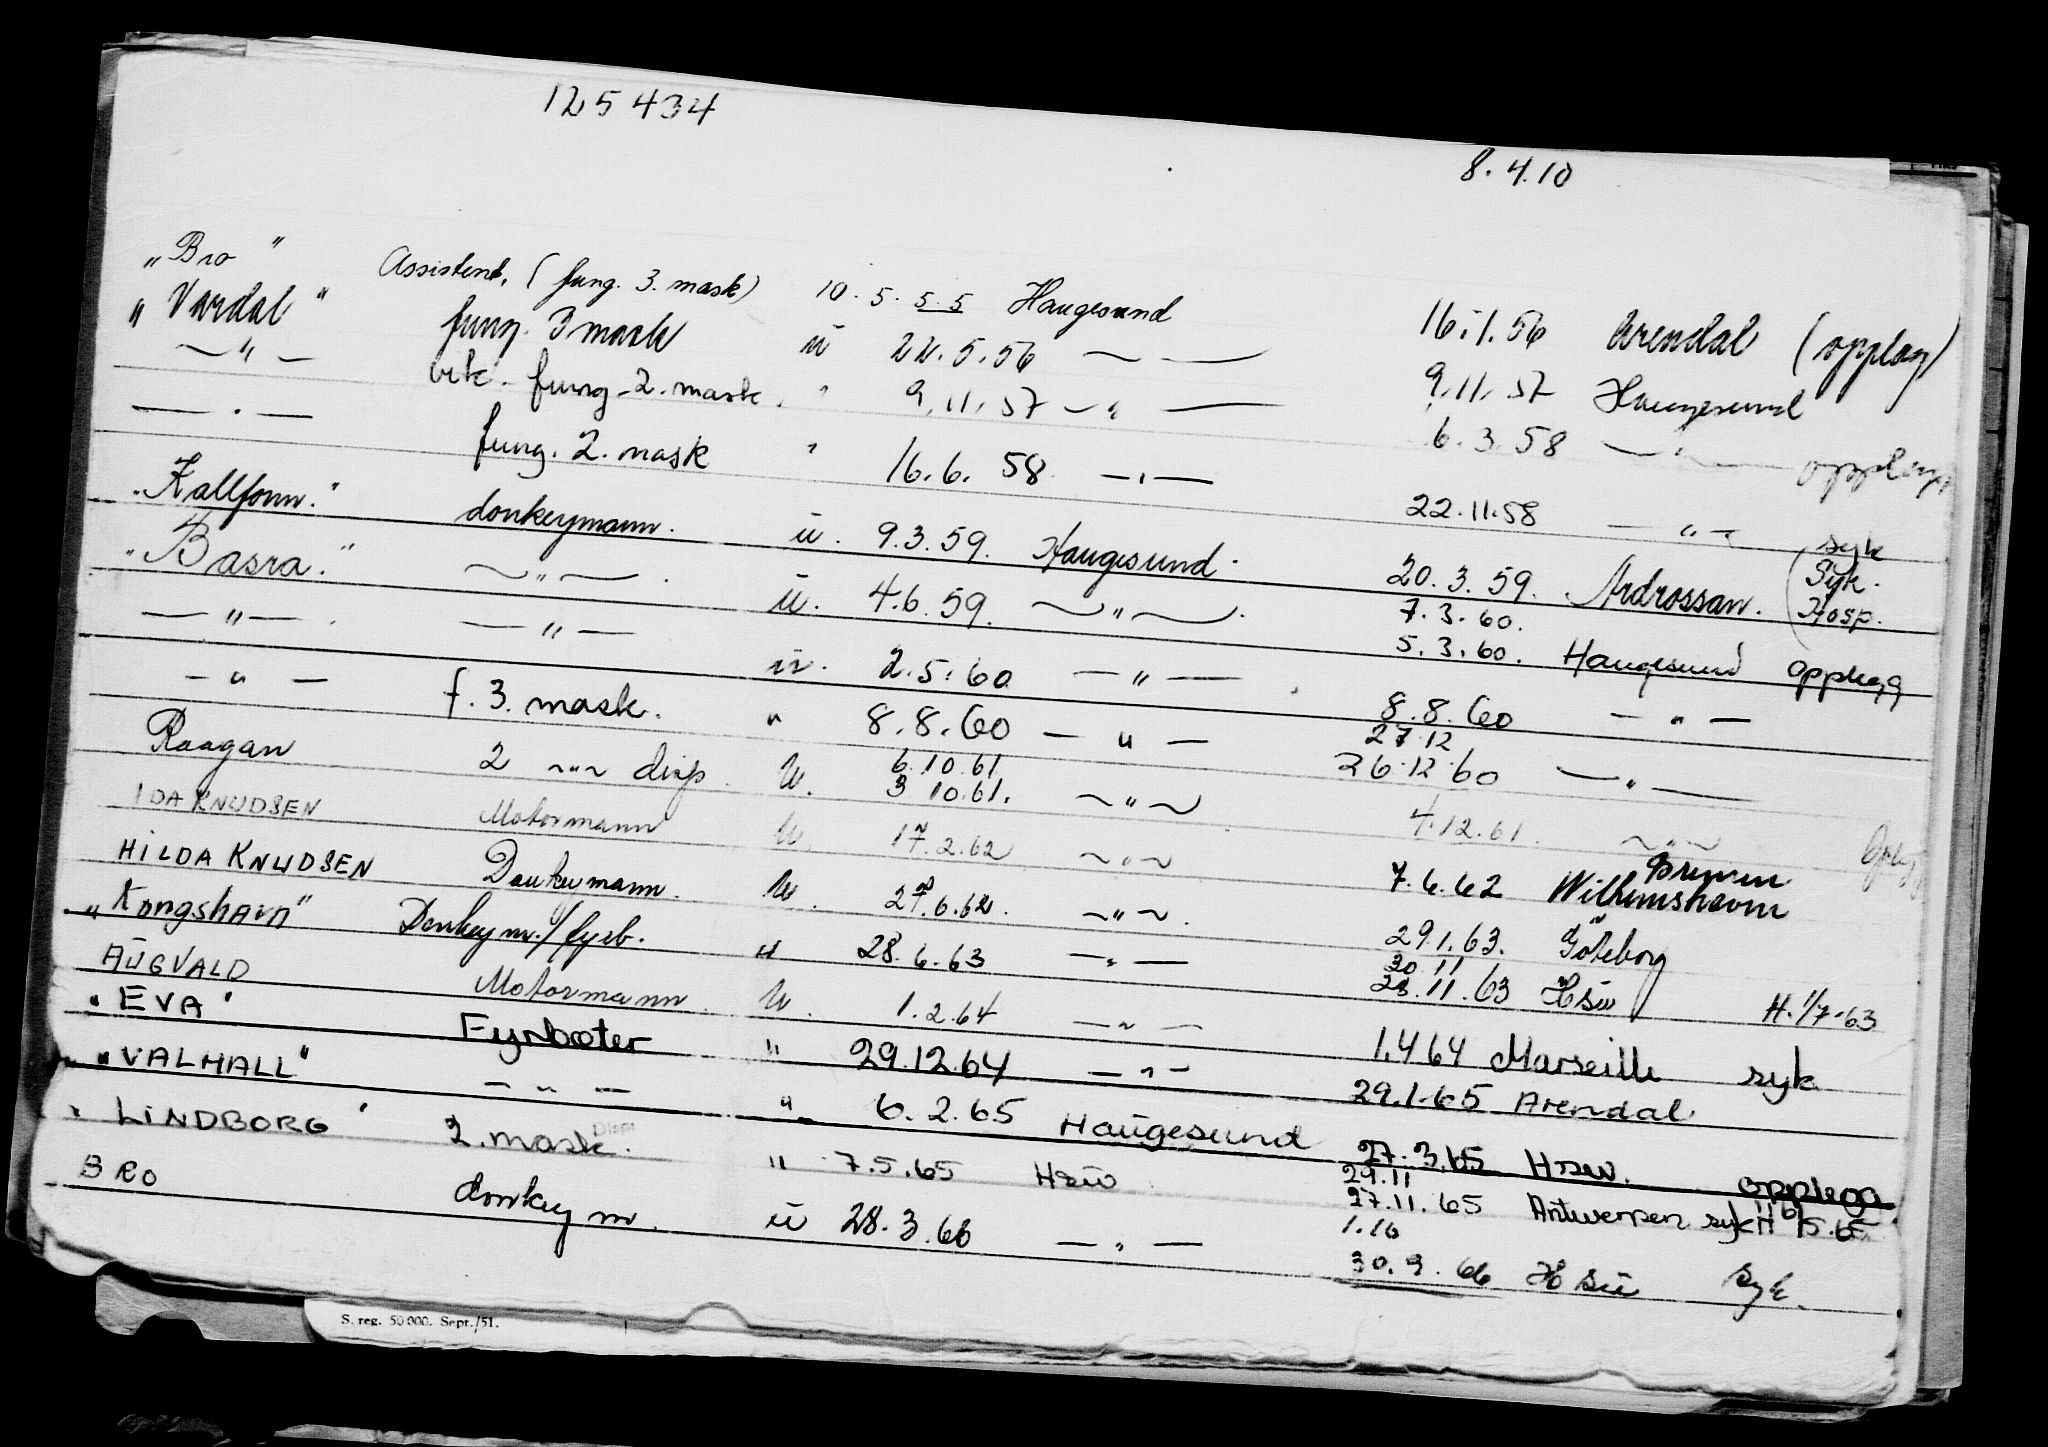 125434
8.4.10
"Bro" Assistent, (fung. 3. mask) 10.5.55 Haugesund 16.1.56 Arendal (opplag)
"Vardal" fung. 3 mask u 22.5.56 — — 9.11.57 Haugesund
— " — fung. 2. mask. " 9.11.57 — " — 6.3.58 — " — opplag
— " — fung. 2. mask " 16.6.58 — " — 22.11.58 — " — syk
"Kallfonn." donkeymann. u. 9.3.59. Haugesund. 20.3.59. Ardrossan. (Syk. Hosp.
"Basra." — " — . u. 4.6.59. — " — . 7.3.60. 5.3.60. Haugesund opplegg
— " — . — " — u. 2.5.60 — " — 8.8.60 — " —
— " — f. 3. mask. " 8.8.60 — " — 27.12 26.12.60 — " —
Raagan 2 — " — disp. u. 6.10.61 3 10.61. — " — 4.12.61. — " —
IDA KNUDSEN Motormann u. 17.2.62 — " — 7.6.62 Bremen Wilhelmshavn
HILDA KNUDSEN Donkeymann. u. 27.6.62. — " — . 29.1.63. Göteborg
"Kongshavn" Donkeym./fyrb. u 28.6.63 — " — 30 11 28.11.63 Hsu H. 1/7-63
AUGVALD Motormann. u. 1.2.64 — " — 1.4 64 Marseille syk
"EVA" Fyrbøter " 29.12.64 — " — 29.1.65 Arendal
"VALHALL" — " — " 6.2.65 Haugesund 27.3.65 Hsu. opplegg
"LINDBORG" 2. mask. Disp " 7.5.65 Hsu 29.11 27.11.65 Antwerpen syk
BRO donkeym. u 28.3.66 — " — 1.10 30.9.66 Hsu Syk.
S. reg. 50 000. Sept./51.